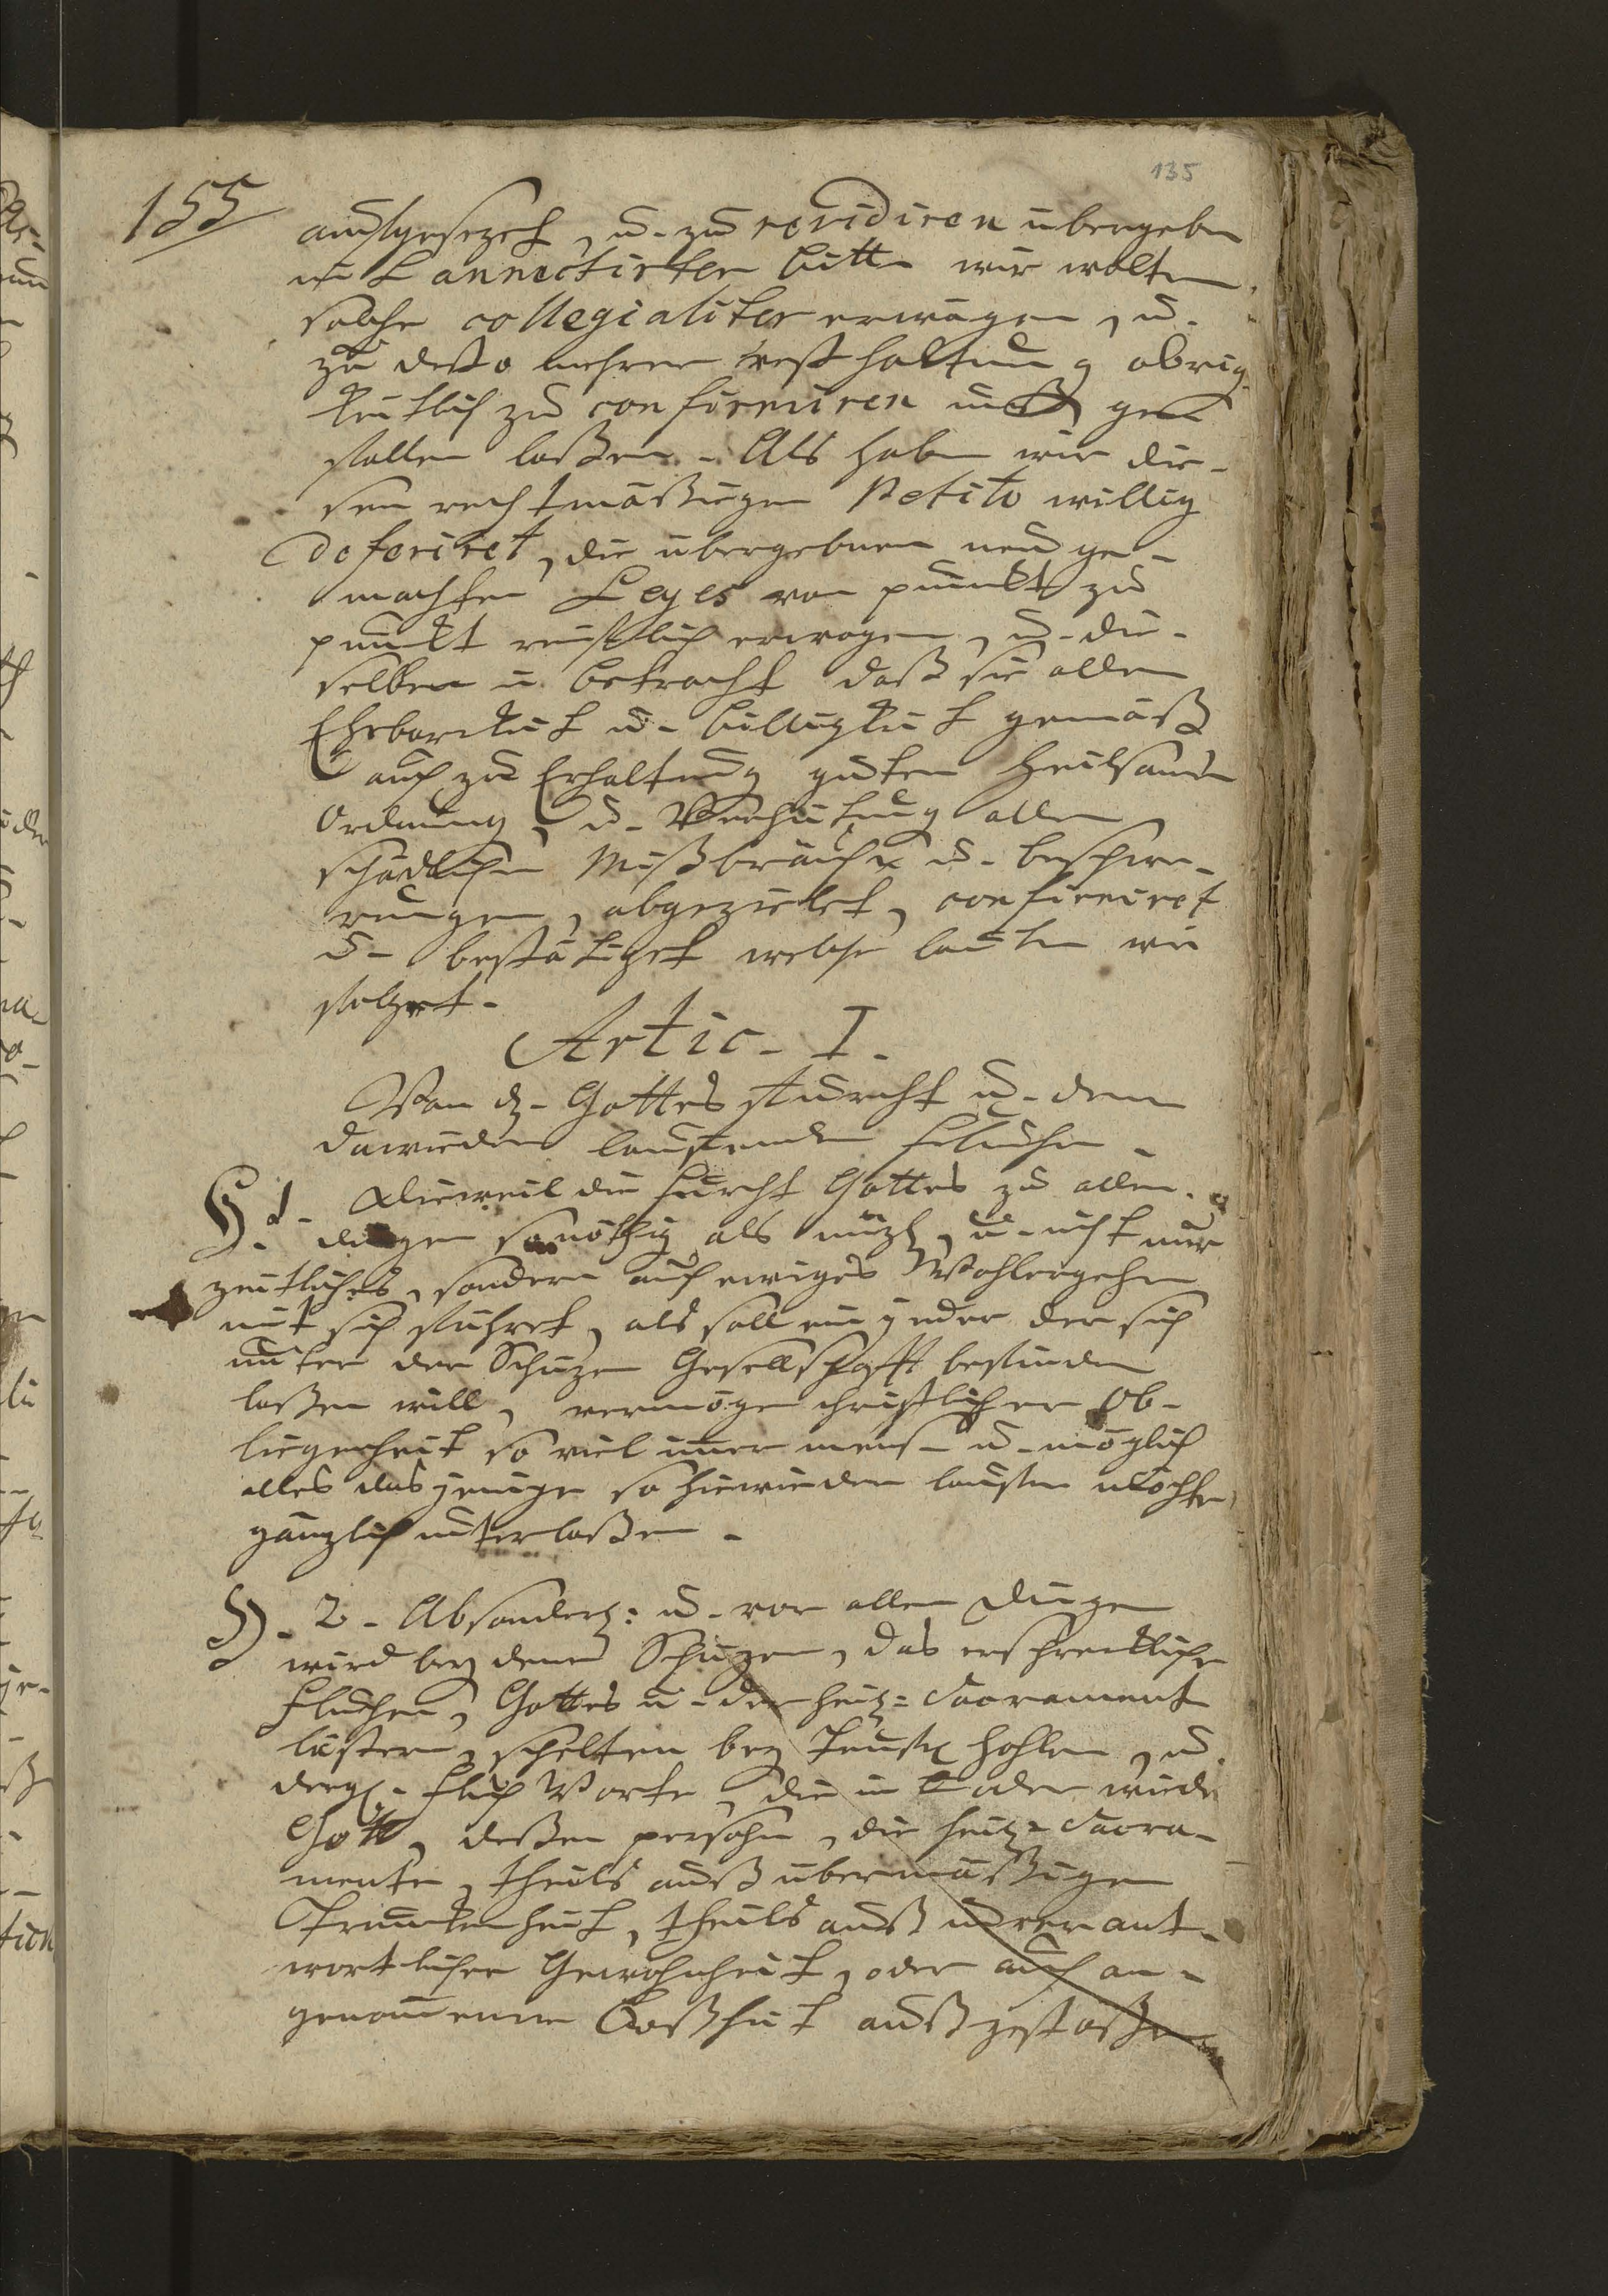 135
155
auffgesezet, u. zu revidiren übergeben
mit annectirter bitte wir wolten
solche collegialiter erwägen, u.
zu desto mehrer vesthaltung obrig
keitlich zu confirmiren unß ge
fallen laßen. Als haben wir die-
sen rechtmäßigen Petito willig
deferiret, die übergebenen neu ge-
machten Leges von punkt zu
punkt reifflich erwogen, u. die-
selben in betracht daß sie allen
Ehrbarkeit u. billigkeit gemäß
auch zu Erhaltung guten heilsamen
Ordnung, u. Verhütung allen
schädlichen Mißbräuche u. beschwe-
rungen, abgezielet, confirmiret
u. bestätiget welche lauten wie
folget.
Artic. I.
Von d. Gottes furcht u. dem
dawieder lauffenden fluchen.
§. 1. Alldieweil die furcht Gottes zu allen
dingen so nöthig als nüzl., u. nicht nur
zeitliches, sondern auch ewiges Wohlergehen
mit sich führet, als soll ein jeder der sich
unter der Schüzen Gesellschafft befinden
laßen will, vermöge christlicher Ob-
liegenheit so viel immer mensch- u. möglich
alles dasjenige so hiewieder lauffen möchte
gänzlich unterlaßen.
§. 2. Absonderl: u. vor allen dingen
wird bey denen Schüzen, das erschreckliche
fluchen, Gottes u. der heil: Sacrament
lästern, schelten bey Teuffel hohlen, u.
dergl. fluch Worte, die in oder wieder
Gott, deßen persohn, die heil: Sacra-
mente, theils auß übermäßigen
Trunckenheit, theils auß unverant-
wortlicher Gewohnheit, oder auch an-
genommener Boßheit außgestoßen